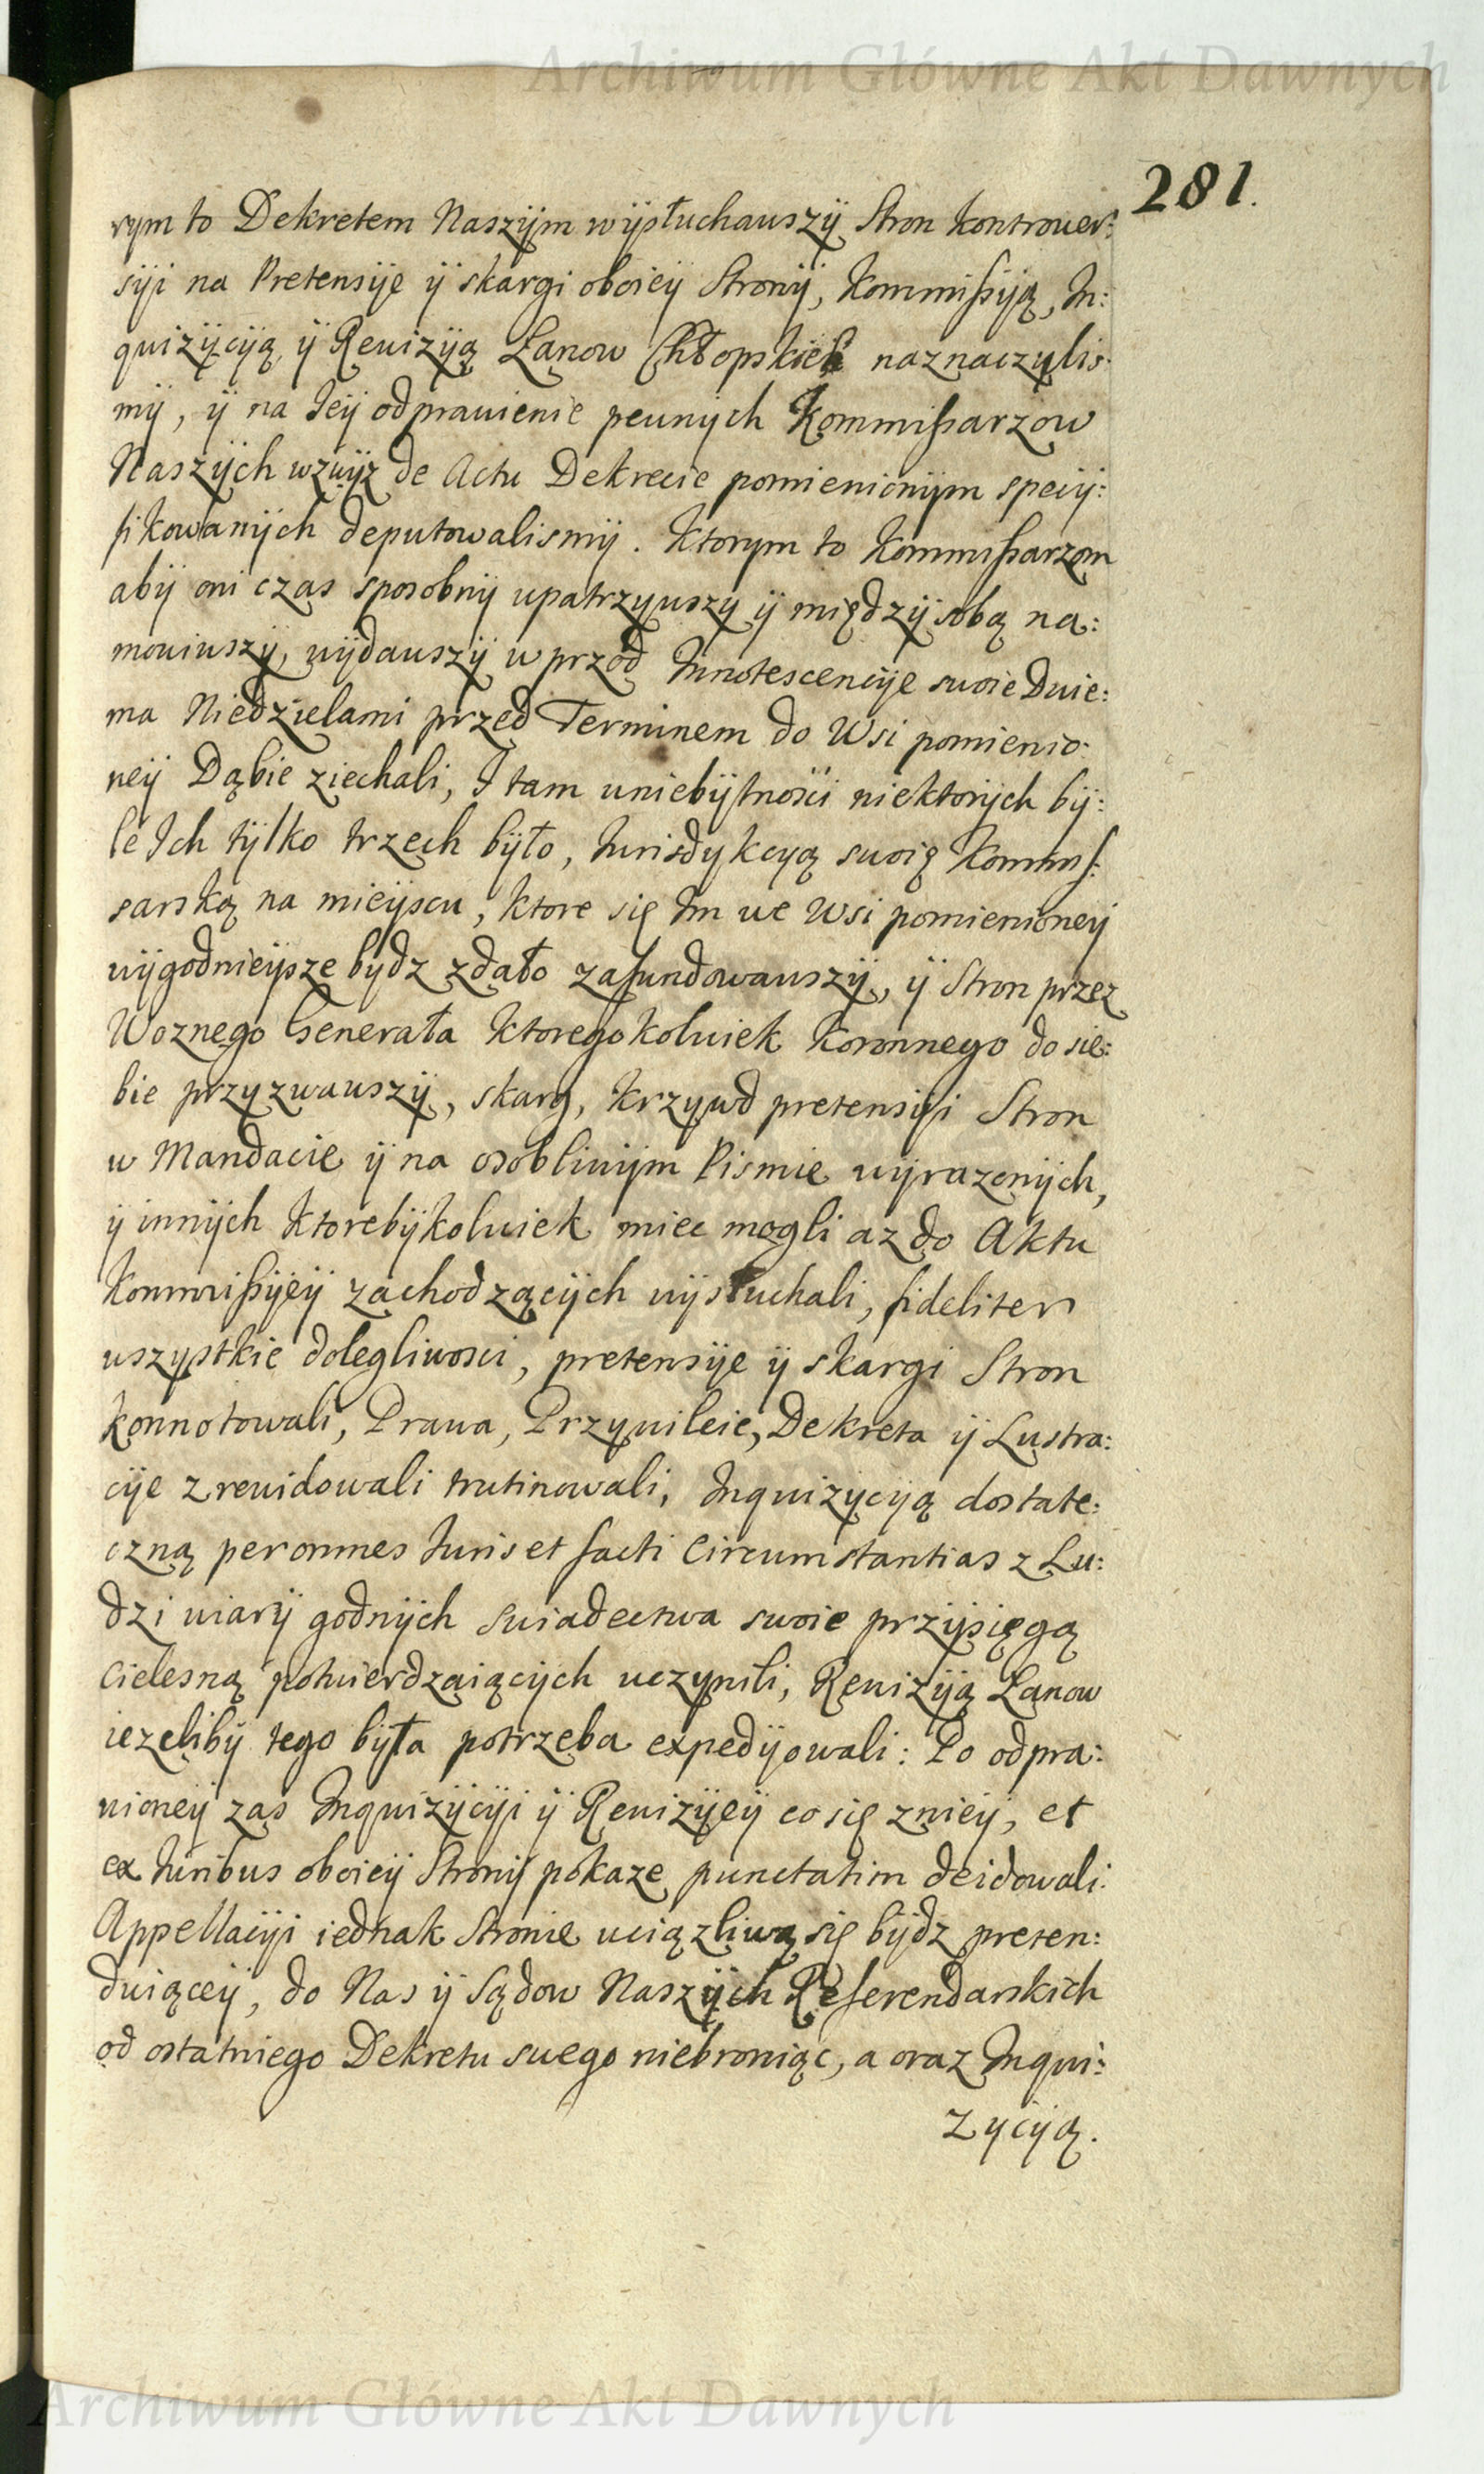 Archiwum Główne Akt Dawnych
281.
rym to Dekretem Naszÿm wÿsłuchauszÿ Stron kontrouer:
sÿi na Pretensÿe ÿ skargi oboieÿ Stronÿ, Kommißÿą, In:
quizÿcÿą, ÿ Reuizÿą Łanow Chłopskich naznaczylis:
mÿ, ÿ na Ieÿ odprauienie peunÿch Kommißarzow
Naszÿch wzwÿz de Actu Dekrecie pomienionÿm specÿ:
fikowanÿch deputowalismÿ. Ktorym to Kommißarzom
abÿ oni czas sposobnÿ upatrzyuszy ÿ międzÿ sobą na:
mouiuszÿ, uÿdauszÿ w przod Innotescencÿe swoie Duie:
ma Niedzielami przed Terminem do Wsi pomienio:
neÿ Dąbie ziechali, I tam uniebÿtnosci niektorÿch bÿ:
le Ich tÿlko trzech bÿło, Iurisdykcyą swoię Kommis:
sarską na mieÿscu, ktore się Im we Wsi pomienioneÿ
uÿgodnieÿsze bydz zdało zafundowauszÿ, ÿ Stron przez
Woznego Generała ktoregokolwiek Koronnego do sie:
bie przyzwauszÿ, skarg, krzywd pretensÿi Stron
w Mandacie ÿ na osobliuÿm Pismie uÿrazonÿch,
ÿ innÿch ktorebÿkolwiek miec mogli az do Aktu
Kommißÿeÿ zachodzącÿch uÿsłuchali, fideliter
uszystkie dolegliwosci, pretensÿe ÿ skargi Stron
konnotowali, Praua, Przyuileie, Dekreta ÿ Lustra:
cÿe zreuidowali trutinowali, Inquizycyą dostate:
czną per omnes Iuris et facti Circumstantias z Lu:
dzi uiarÿ godnÿch suiadectwa swoie przÿsięgą
Cielesną potwierdzaiącÿch uczynili, Reuizÿą Łanow
iezelibÿ tego bÿła potrzeba expedÿowali: Po odpra:
uioneÿ zas Inquizÿcÿi ÿ Reuizÿeÿ co się zniey, et
ex Iuribus oboieÿ Stronÿ pokaze punctatim decidowali.
Appellacÿi iednak Stronie uciązliwą się bÿdz preten:
duiąceÿ, do Nas ÿ Sądow Naszÿch Referendarskich
od ostatniego Dekretu swego niebroniąc, a oraz Inqui:
zycyą.
Archiwum Główne Akt Dawnych